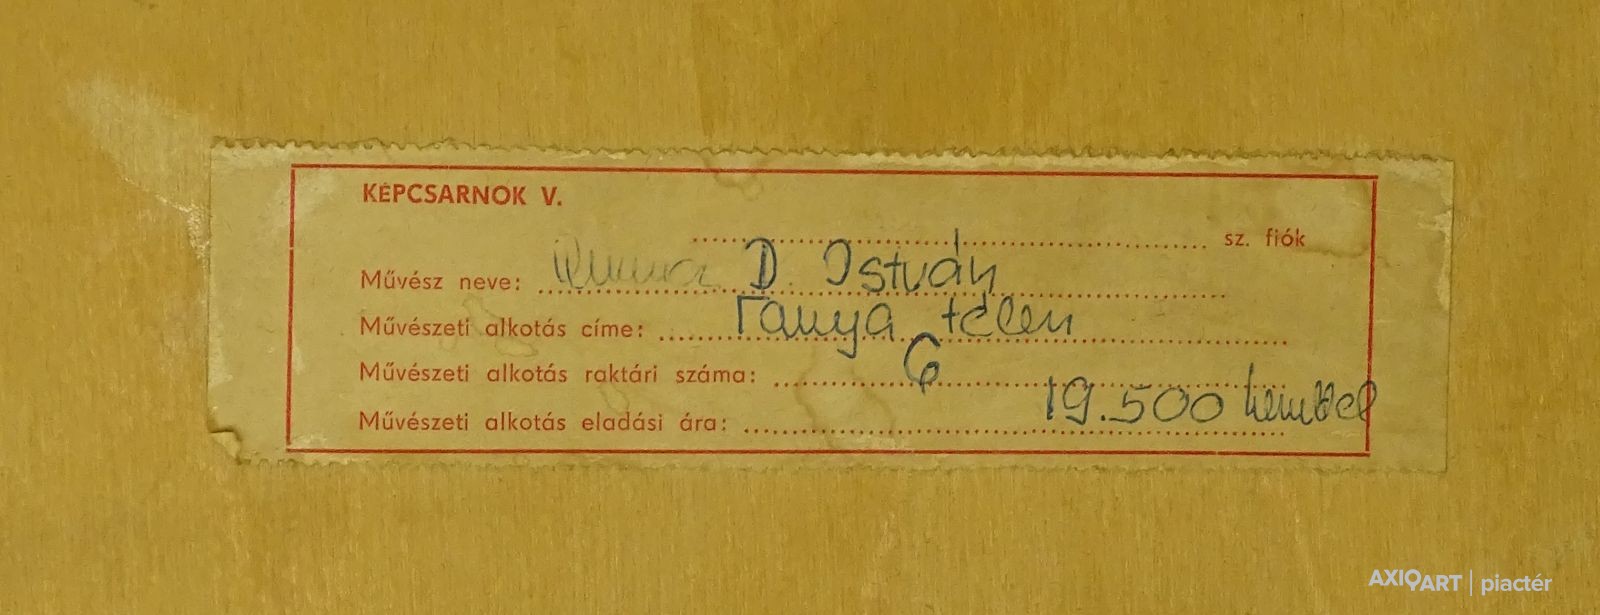 KÉPCSARNOK V.
sz. fiók
Művész neve: D. István
Művészeti alkotás címe: Tanya télen
Művészeti alkotás raktári száma: 6
Művészeti alkotás eladási ára: 19.500
AXIOART | piactér